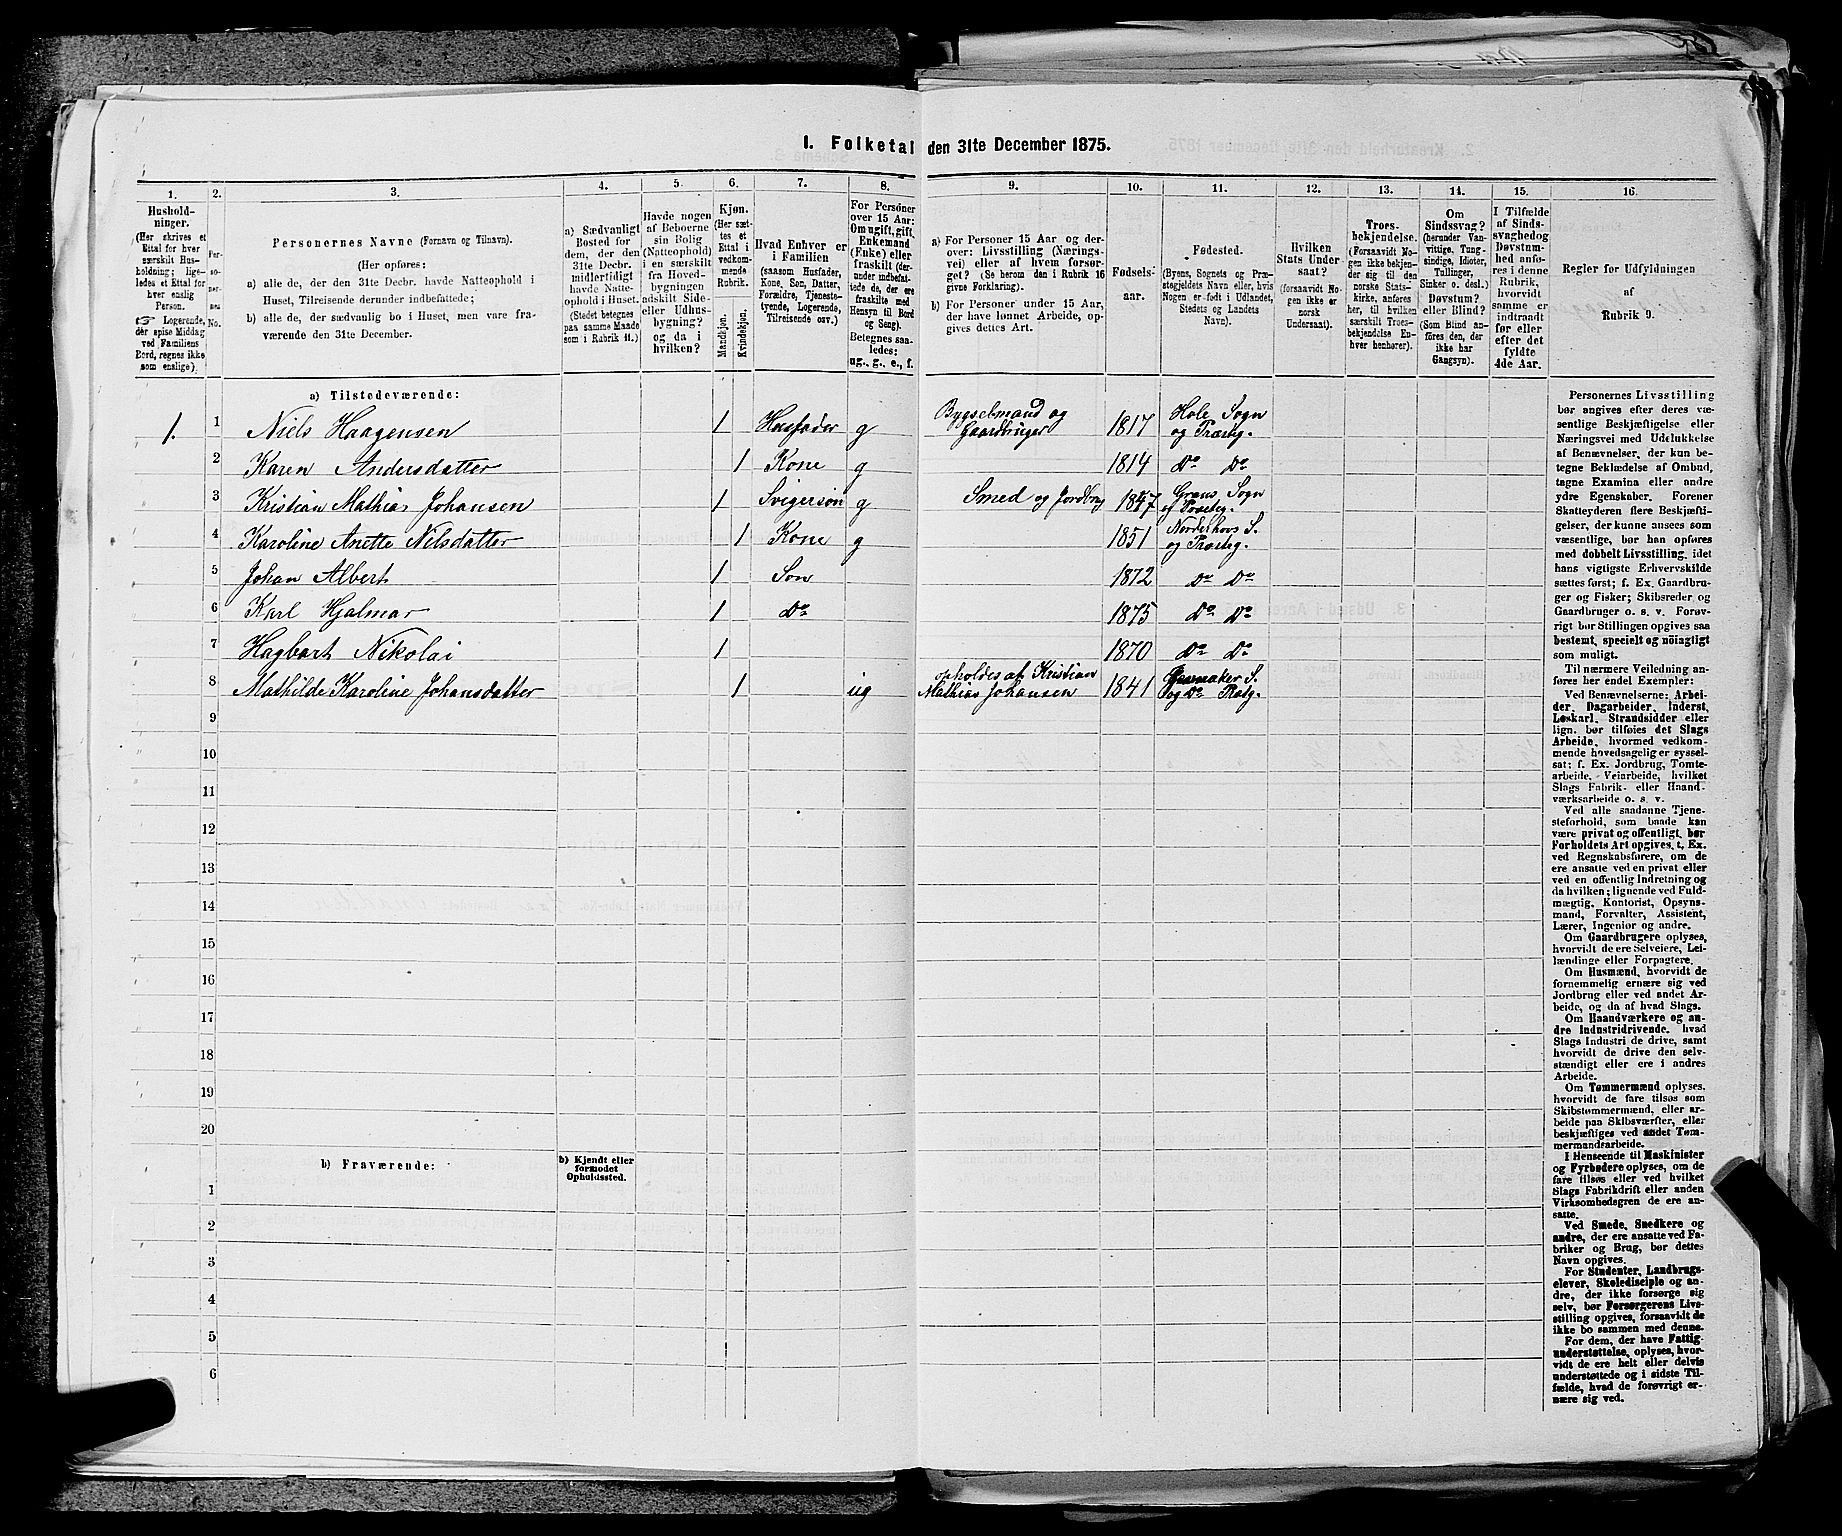 1. Folketal den 31te December 1875.
1. 2. 3. 4. 5. 6. 7. 8. 9. 10. 11. 12. 13. 14. 15. 16.
Hushold-
ninger.
(Her skrives et
Ettal for hver
særskilt Hus-
holdning; lige-
ledes et Ettal for
hver enslig
Person.
☞ Logerende,
der spise Middag
ved Familiens
Bord, regnes ikke
som enslige).
Per-
so-
per-
nes
No.
Personernes Navne (Fornavn og Tilnavn).
(Her opføres:
a) alle de, der den 31te Decbr. havde Natteophold i
Huset, Tilreisende derunder indbefattede;
b) alle de, der sædvanlig bo i Huset, men vare fra-
værende den 31te December.
a) Sædvanligt
Bosted for
dem, der den
31te Decbr.
midlertidigt
havde Natte-
ophold i Huset.
(Stedet betegnes
paa samme Maade
som i Rubrik 11.)
Havde nogen
af Beboerne
sin Bolig
(Natteophold)
i en særskilt
fra Hoved-
bygningen
adskilt Side-
eller Udhus-
bygning?
og da i
hvilken?
Kjøn.
(Her sæt-
tes et
Ettal i
vedkom-
mende
Rubrik.
Mandkjøn.
Kvindekjøn.
Hvad Enhver er
i Familien
(saasom Husfader,
Kone, Søn, Datter,
Forældre, Tjeneste-
tyende, Logerende,
Tilreisende osv.)
For Personer
over 15 Aar:
Om ugift, gift,
Enkemand
(Enke) eller
fraskilt (der-
under indbefat-
tede de, der ere
fraskilte med
Hensyn til Bord
og Seng).
Betegnes saa-
ledes:
ug., g., e., f.
a) For Personer 15 Aar og der-
over: Livsstilling (Nærings-
vei) eller af hvem forsør-
get? (Se herom den i Rubrik 16
givne Forklaring).
b) For Personer under 15 Aar,
der have lønnet Arbeide, op-
gives dettes Art.
Fødsels-
aar.
Fødested.
(Byens, Sognets og Præ-
stegjeldets Navn eller, hvis
Nogen er født i Udlandet,
Stedets og Landets
Navn).
Hvilken
Stats Under-
saat?
(forsaavidt No-
gen ikke er
norsk
Undersaat).
Troes-
bekjendelse.
(Forsaavidt No-
gen ikke bekjen-
der sig til den
norske Stats-
kirke, anføres
her, til hvilken
særskilt Troes-
bekjendelse En-
hver henhører).
Om
Sindssvag?
(herunder Van-
vittige, Tung-
sindige, Idioter,
Tullinger,
Sinker o. desl.)
Døvstum?
eller Blind?
(Som Blind an-
føres den, der
ikke har
Gangsyn).
I Tilfælde
af Sinds-
svaghed og
Døvstum-
hed anfø-
res i denne
Rubrik,
hvorvidt
samme er
indtraadt
før eller
efter det
fyldte
4de Aar.
Regler for Udfyldningen
af
Rubrik 9.
a) Tilstedeværende:
1. 1 Niels Haagensen 1 Husfader g Bygselmand og Gaardbruger 1817 Hole Sogn og Præsteg.
2 Karen Andersdatter 1 Kone g 1814 Do Do
3 Kristian Mathias Johansen 1 Svigersøn g Smed og Jordbrug 1847 Grans Sogn og Præsteg.
4 Karoline Anette Nilsdatter 1 Kone g 1851 Norderhovs S. og Præsteg.
5 Johan Albert 1 Søn 1872 Do Do
6 Karl Hjalmar 1 Do 1875 Do Do
7 Hagbart Nikolai 1 1870 Do Do
8 Mathilde Karoline Johansdatter 1 ug opholdes af Kristian Mathias Johansen 1841 S. og Do
9
10
11
12
13
14
15
16
17
18
19
20
b) Fraværende:
b) Kjendt eller
formodet
Opholdssted.
1
2
3
4
5
6
Personernes Livsstilling
bør angives efter deres væ-
sentlige Beskjæftigelse eller
Næringsvei med Udelukkelse
af Benævnelser, der kun be-
tegne Beklædelse af Ombud,
tagne Examina eller andre
ydre Egenskaber. Forener
Skatteyderen flere Beskjæfti-
gelser, der kunne ansees som
væsentlige, bør han opføres
med dobbelt Livsstilling, idet
hans vigtigste Erhvervskilde
sættes først; f. Ex. Gaardbru-
ger og Fisker; Skibsreder og
Gaardbruger o. s. v. Forøv-
rigt bør Stillingen opgives saa
bestemt, specielt og nöiagtigt
som muligt.
Til nærmere Veiledning an-
føres her endel Exempler:
Ved Benævnelserne: Arbei-
der, Dagarbeider, Inderst,
Løskarl, Strandsidder eller
lign. bør tilføies det Slags
Arbeide, hvormed vedkom-
mende hovedsagelig er syssel-
sat; f. Ex. Jordbrug, Tomte-
arbeide, Veiarbeide, hvilket
Slags Fabrik- eller Haand-
værksarbeide o. s. v.
Ved alle saadanne Tjene-
steforhold, som baade kan
være privat og offentligt, bør
Forholdets Art opgives, t. Ex.
ved Regnskabsførere, om de
ere ansatte ved en privat eller
ved en offentlig Indretning og
da hvilken; lignende ved Fuld-
mægtig, Kontorist, Opsyns-
mand, Forvalter, Assistent,
Lærer, Ingeniør og andre.
Om Gaardbrugere oplyses,
hvorvidt de ere Selveiere, Lei-
lændinge eller Forpagtere.
Om Husmænd, hvorvidt de
fornemmelig ernære sig ved
Jordbrug eller ved andet Ar-
beide, og da af hvad Slags.
Om Haandværkere og an-
dre Industridrivende, hvad
Slags Industri de drive, samt
hvorvidt de drive den selv-
stændigt eller ere i andres
Arbeide.
Om Tømmermænd oplyses,
hvorvidt de fare tilsøs som
Skibstømmermænd, eller ar-
beide paa Skibsværfter, eller
beskjæftiges ved andet Tøm-
mermandsarbeide.
I Henseende til Maskinister
og Fyrbødere oplyses, om de
fare tilsøs eller ved hvilket
Slags Fabrikdrift eller anden
Virksomhedsgren de ere an-
satte.
Ved Smede, Snedkere og
andre, der ere ansatte ved Fa-
briker og Brug, bør dettes
Navn opgives.
For Studenter, Landbrugs-
elever, Skoledisciple og an-
dre, der ikke forsørge sig
selv, bør Forsørgerens Livs-
stilling opgives, forsaavidt de
ikke bo sammen med denne.
For dem, der have Fattig-
understøttelse, oplyses, hvor-
vidt de ere helt eller delvis
understøttede og i sidste Til-
fælde, hvad de forøvrigt er-
nære sig ved.